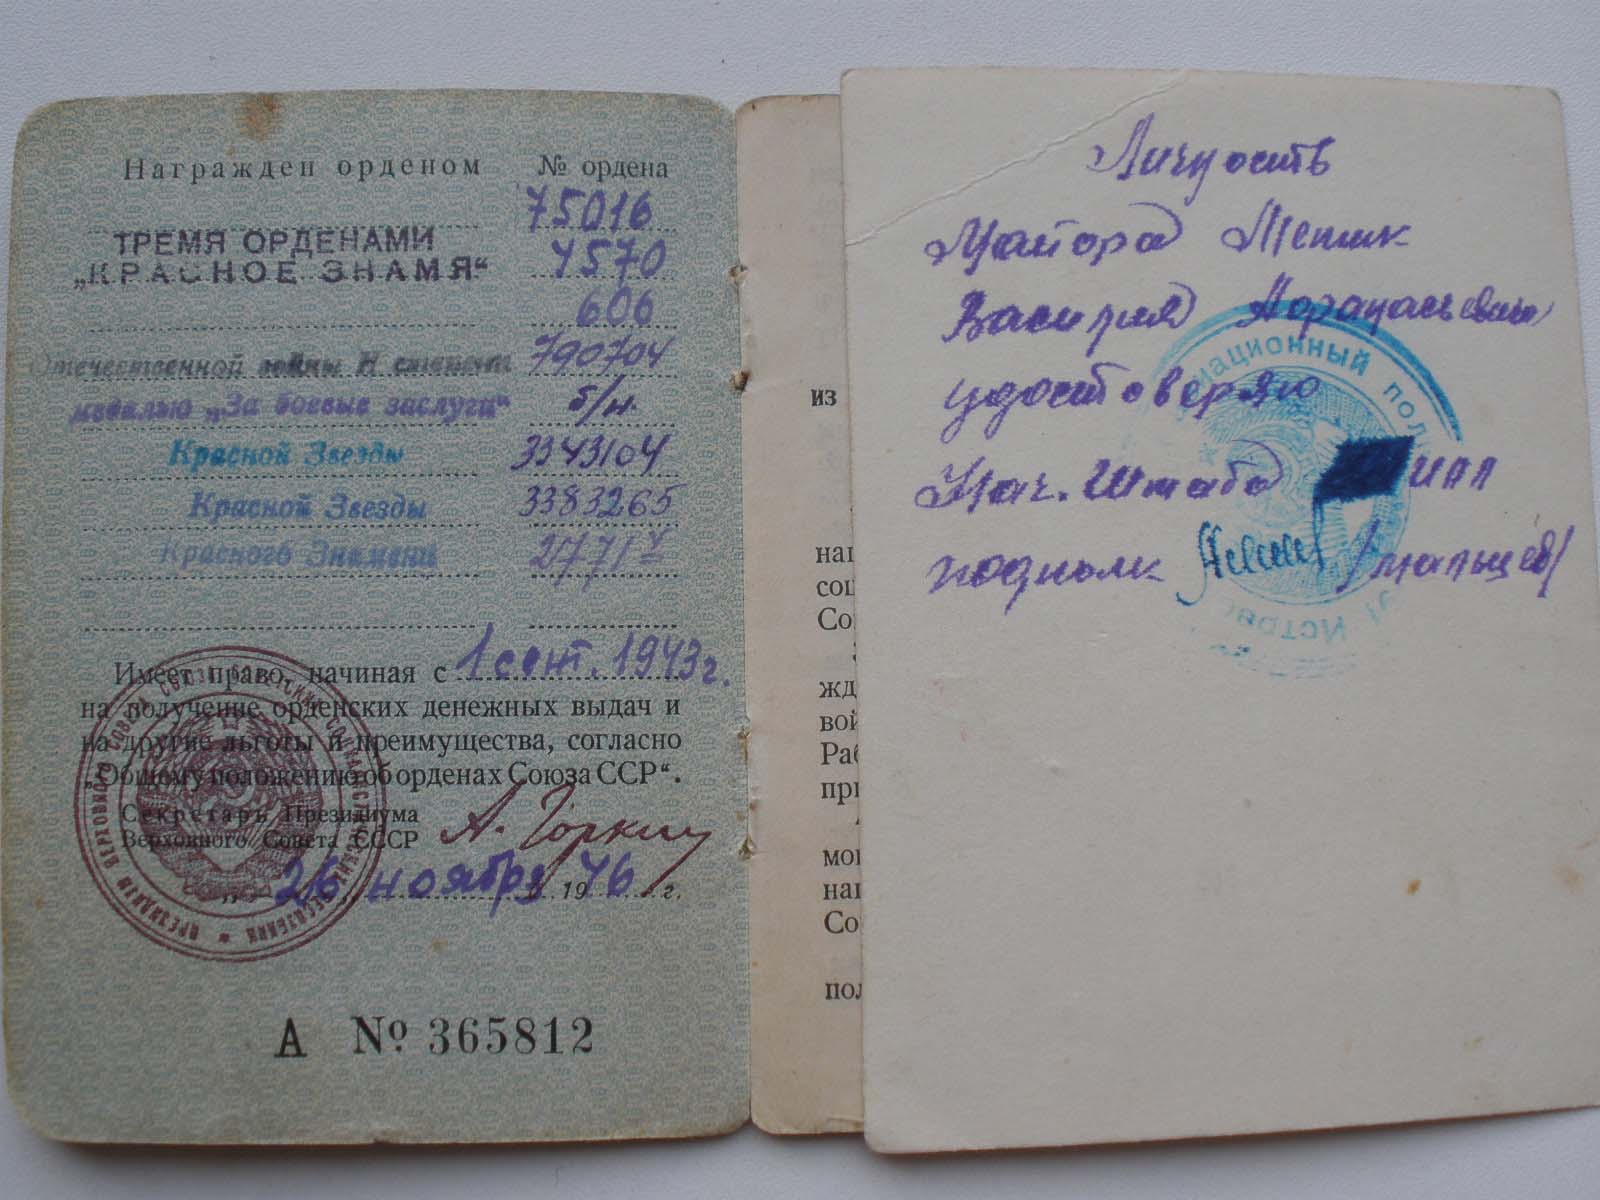 Награжден орденом № ордена
ТРЕМЯ ОРДЕНАМИ 75016
„КРАСНОЕ ЗНАМЯ“ 4570
606
Отечественной войны II степени 790704
медалью „За боевые заслуги“ б/н.
Красной Звезды 3343104
Красной Звезды 3383265
Красного Знамени
Имеет право, начиная с 1 сент. 1943 г.
на получение орденских денежных выдач и
на другие льготы и преимущества, согласно
„Общему положению об орденах Союза ССР“.
Секретарь Президиума
Верховного Совета СССР А. Горкин
„26“ ноября 1946 г.
А № 365812
из
наг
соц
Со
жд
вой
Раб
при
мог
наг
Со
пол
Личность
Майора
Василия
удостоверяю
Нач. Штаба ИАП
подполк /Мальцев/
ационный пол